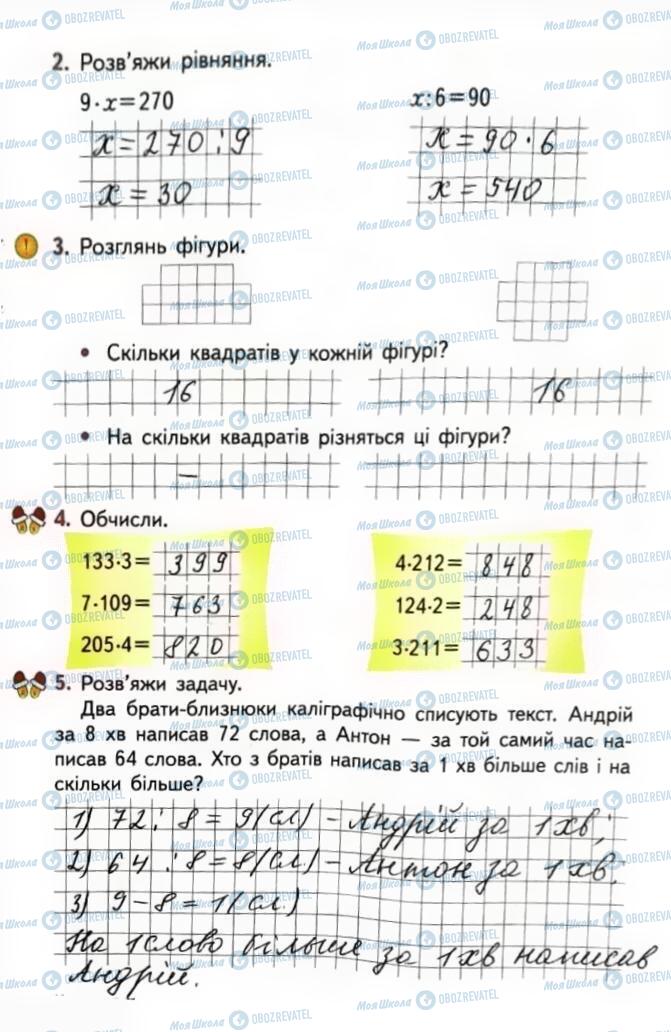 2. Розв'яжи рівняння.
9·x=270
x:6=90
x = 270 : 9
x = 90 · 6
x = 30
x = 540
3. Розглянь фігури.
• Скільки квадратів у кожній фігурі?
16
16
• На скільки квадратів різняться ці фігури?
–
4. Обчисли.
133·3= 399
4·212= 848
7·109= 763
124·2= 248
205·4= 820
3·211= 633
5. Розв'яжи задачу.
Два брати-близнюки каліграфічно списують текст. Андрій
за 8 хв написав 72 слова, а Антон — за той самий час на-
писав 64 слова. Хто з братів написав за 1 хв більше слів і на
скільки більше?
1) 72 : 8 = 9 (сл) – Андрій за 1 хв;
2) 64 : 8 = 8 (сл) – Антон за 1 хв.
3) 9 – 8 = 1 (сл)
На 1 слово більше за 1 хв написав
Андрій.
МояШкола OBOZREVATEL